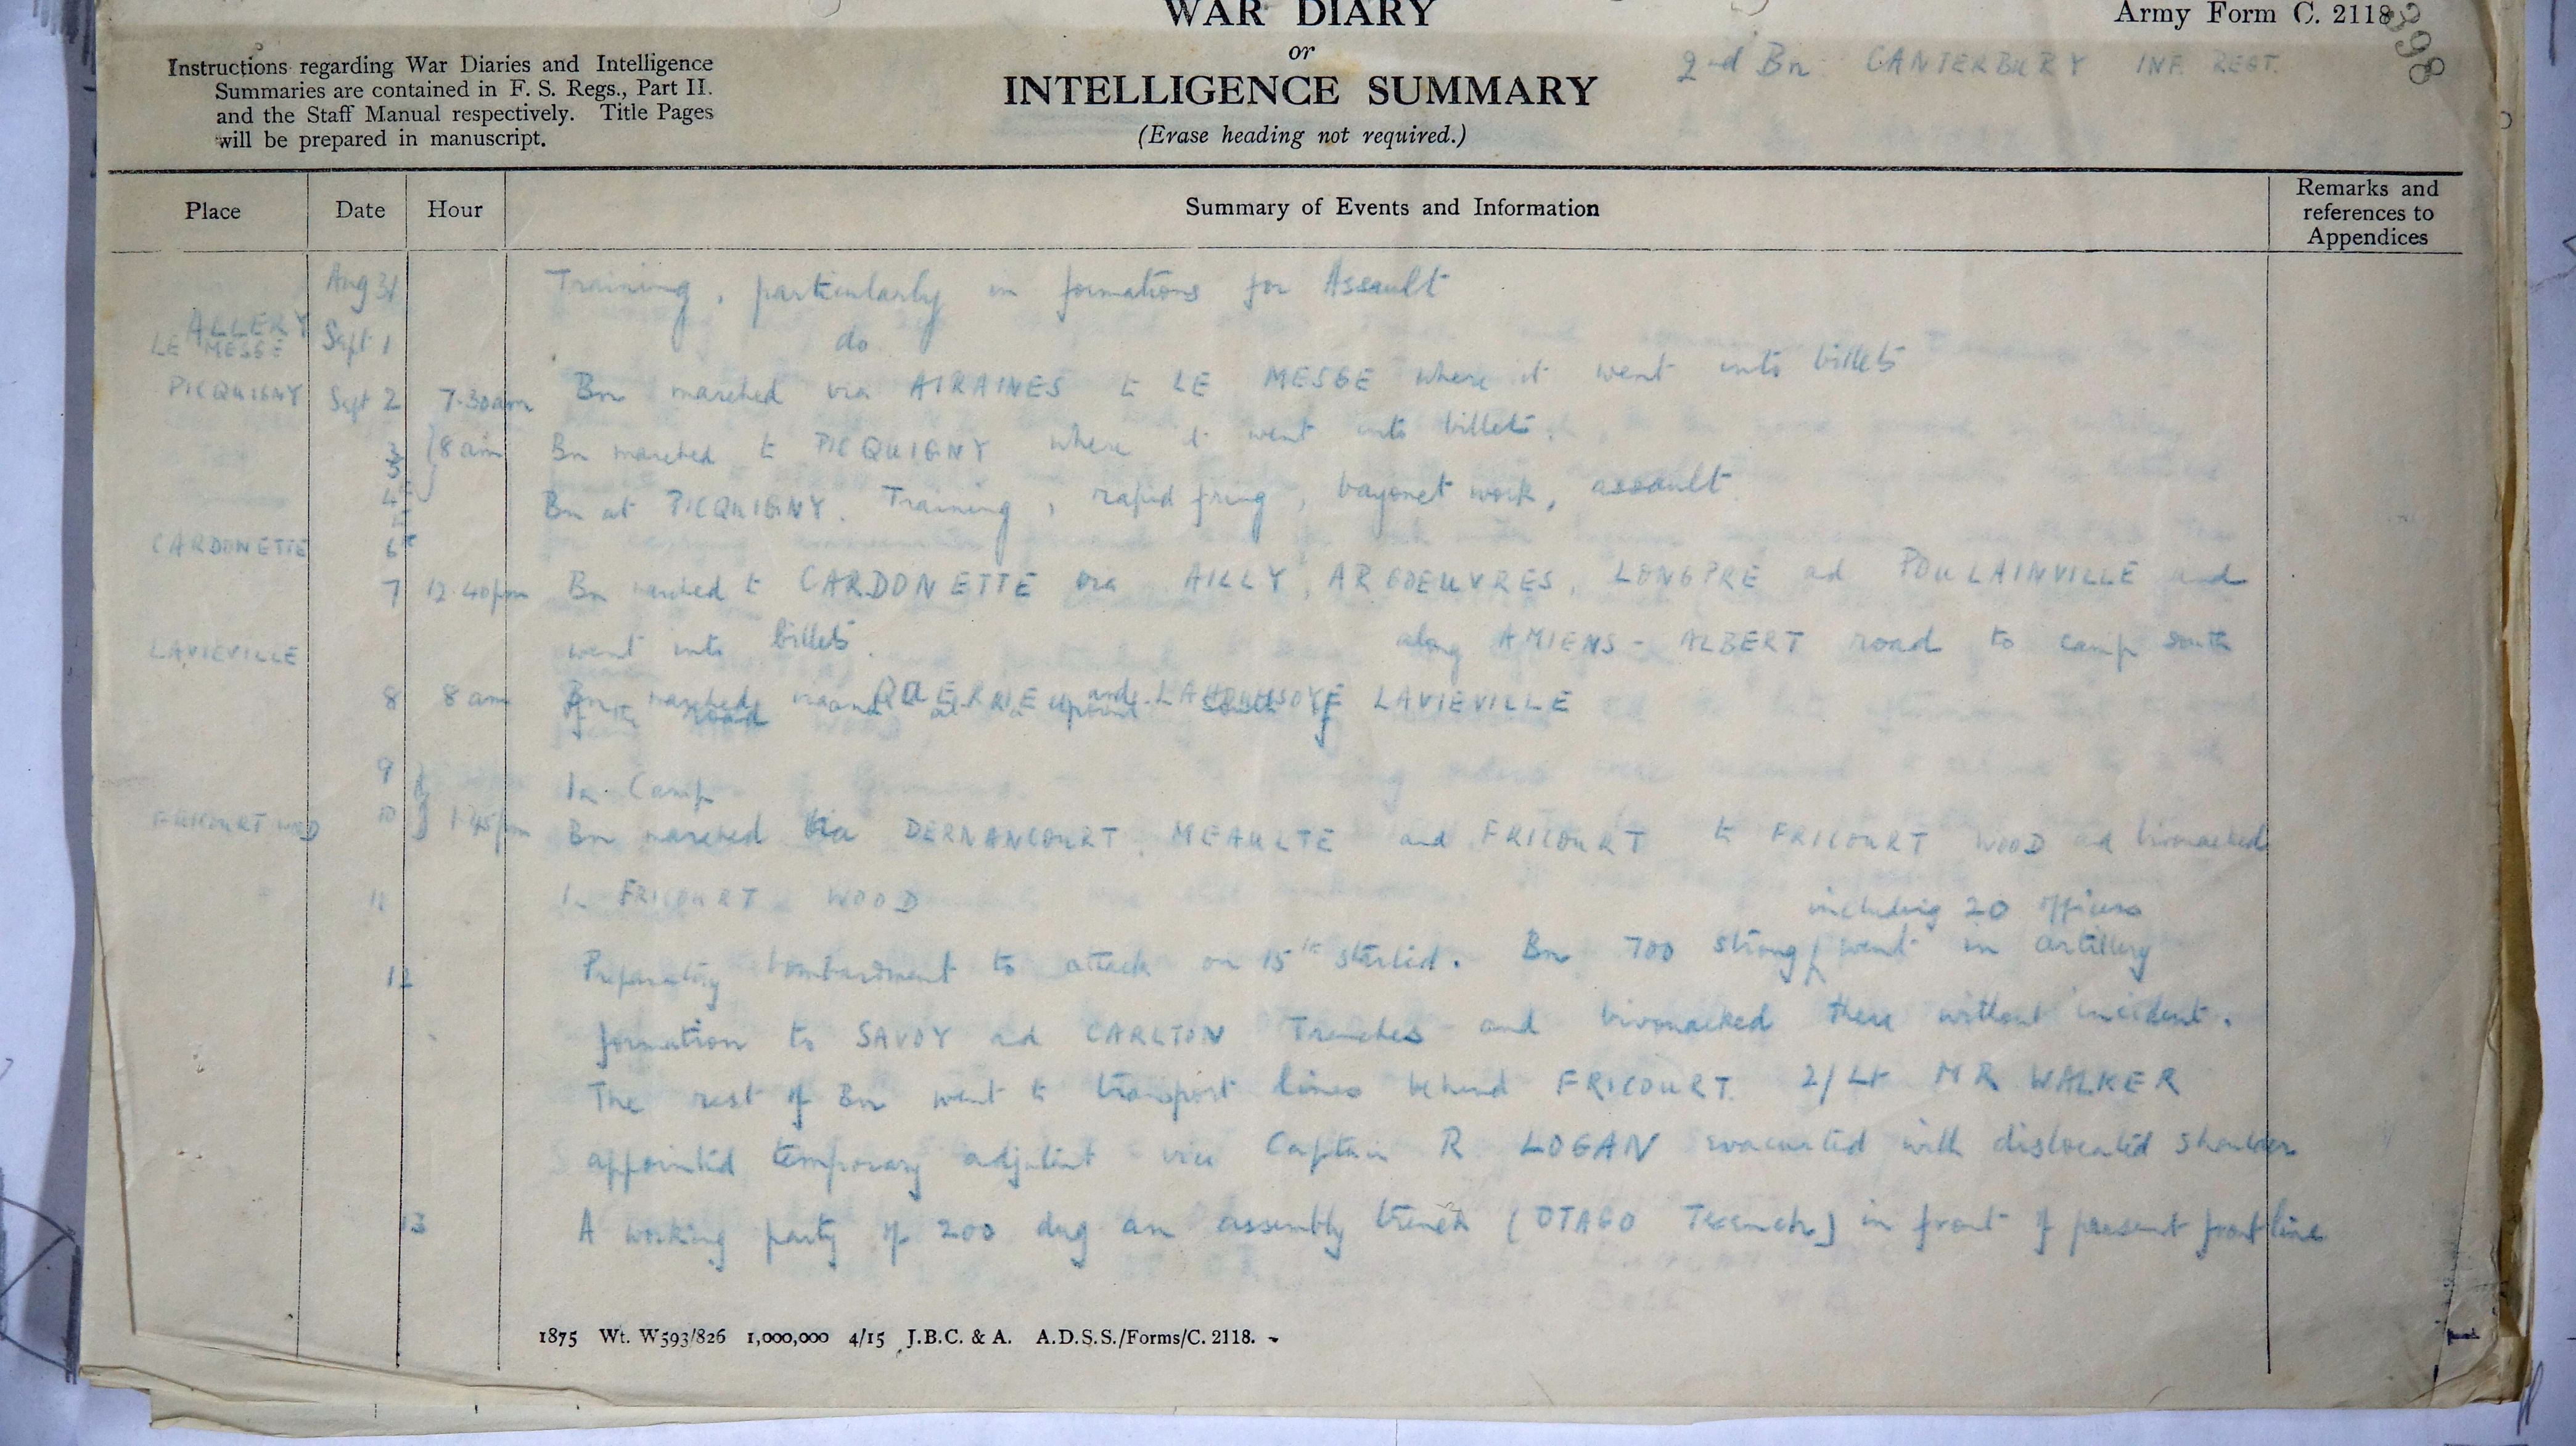 WAR DIARY
Army Form C. 2118
or
INTELLIGENCE SUMMARY
(Erase heading not required.)
Instructions regarding War Diaries and Intelligence
Summaries are contained in F. S. Regs., Part II.
and the Staff Manual respectively. Title Pages
will be prepared in manuscript.
2nd Bn CANTERBURY INF. REGT.
398
Place Date Hour Summary of Events and Information Remarks and references to Appendices
Aug 31 Training, particularly in formations for Assault
ALLERY Sept 1 do
LE MESGE
PICQUIGNY Sept 2 7.30am Bn marched via AIRAINES to LE MESGE where it went into billets
3 8 am Bn marched to PICQUIGNY where it went into billets.
4 Bn at PICQUIGNY. Training, rapid firing, bayonet work, assault
CARDONETTE 6
7 12.40pm Bn marched to CARDONETTE via AILLY, ARGOEUVRES, LONGPRE ad POULAINVILLE and
went into billets.
along AMIENS - ALBERT road to camp south
LAVIEVILLE
8 8 am Bn marched via QUERRIE and LAHOUSSOYE
of LAVIEVILLE
9 In Camp
FRICOURT WOOD 10 1.45pm Bn marched via DERNANCOURT, MEAULTE and FRICOURT to FRICOURT WOOD ad bivouacked
11 In FRICOURT WOOD
including 20 officers
12 Preparatory bombardment to attack on 15th started. Bn 700 strong went in artillery
formation to SAVOY ad CARLTON Trenches and bivouacked there without incident.
The rest of Bn went to transport lines behind FRICOURT. 2/Lt M R WALKER
appointed temporary adjutant vice Captain R LOGAN evacuated with dislocated shoulder
13 A working party of 200 dug an assembly trench (OTAGO Trench) in front of present front line
1875 Wt. W593/826 1,000,000 4/15 J.B.C. & A. A.D.S.S./Forms/C. 2118.